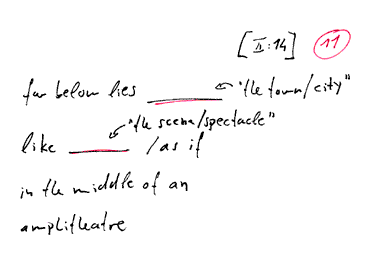 [II:14] 11
far below lies ______ "the town/city"
"the scena/spectacle"
like ______ /as if
in the middle of an
amplitheatre